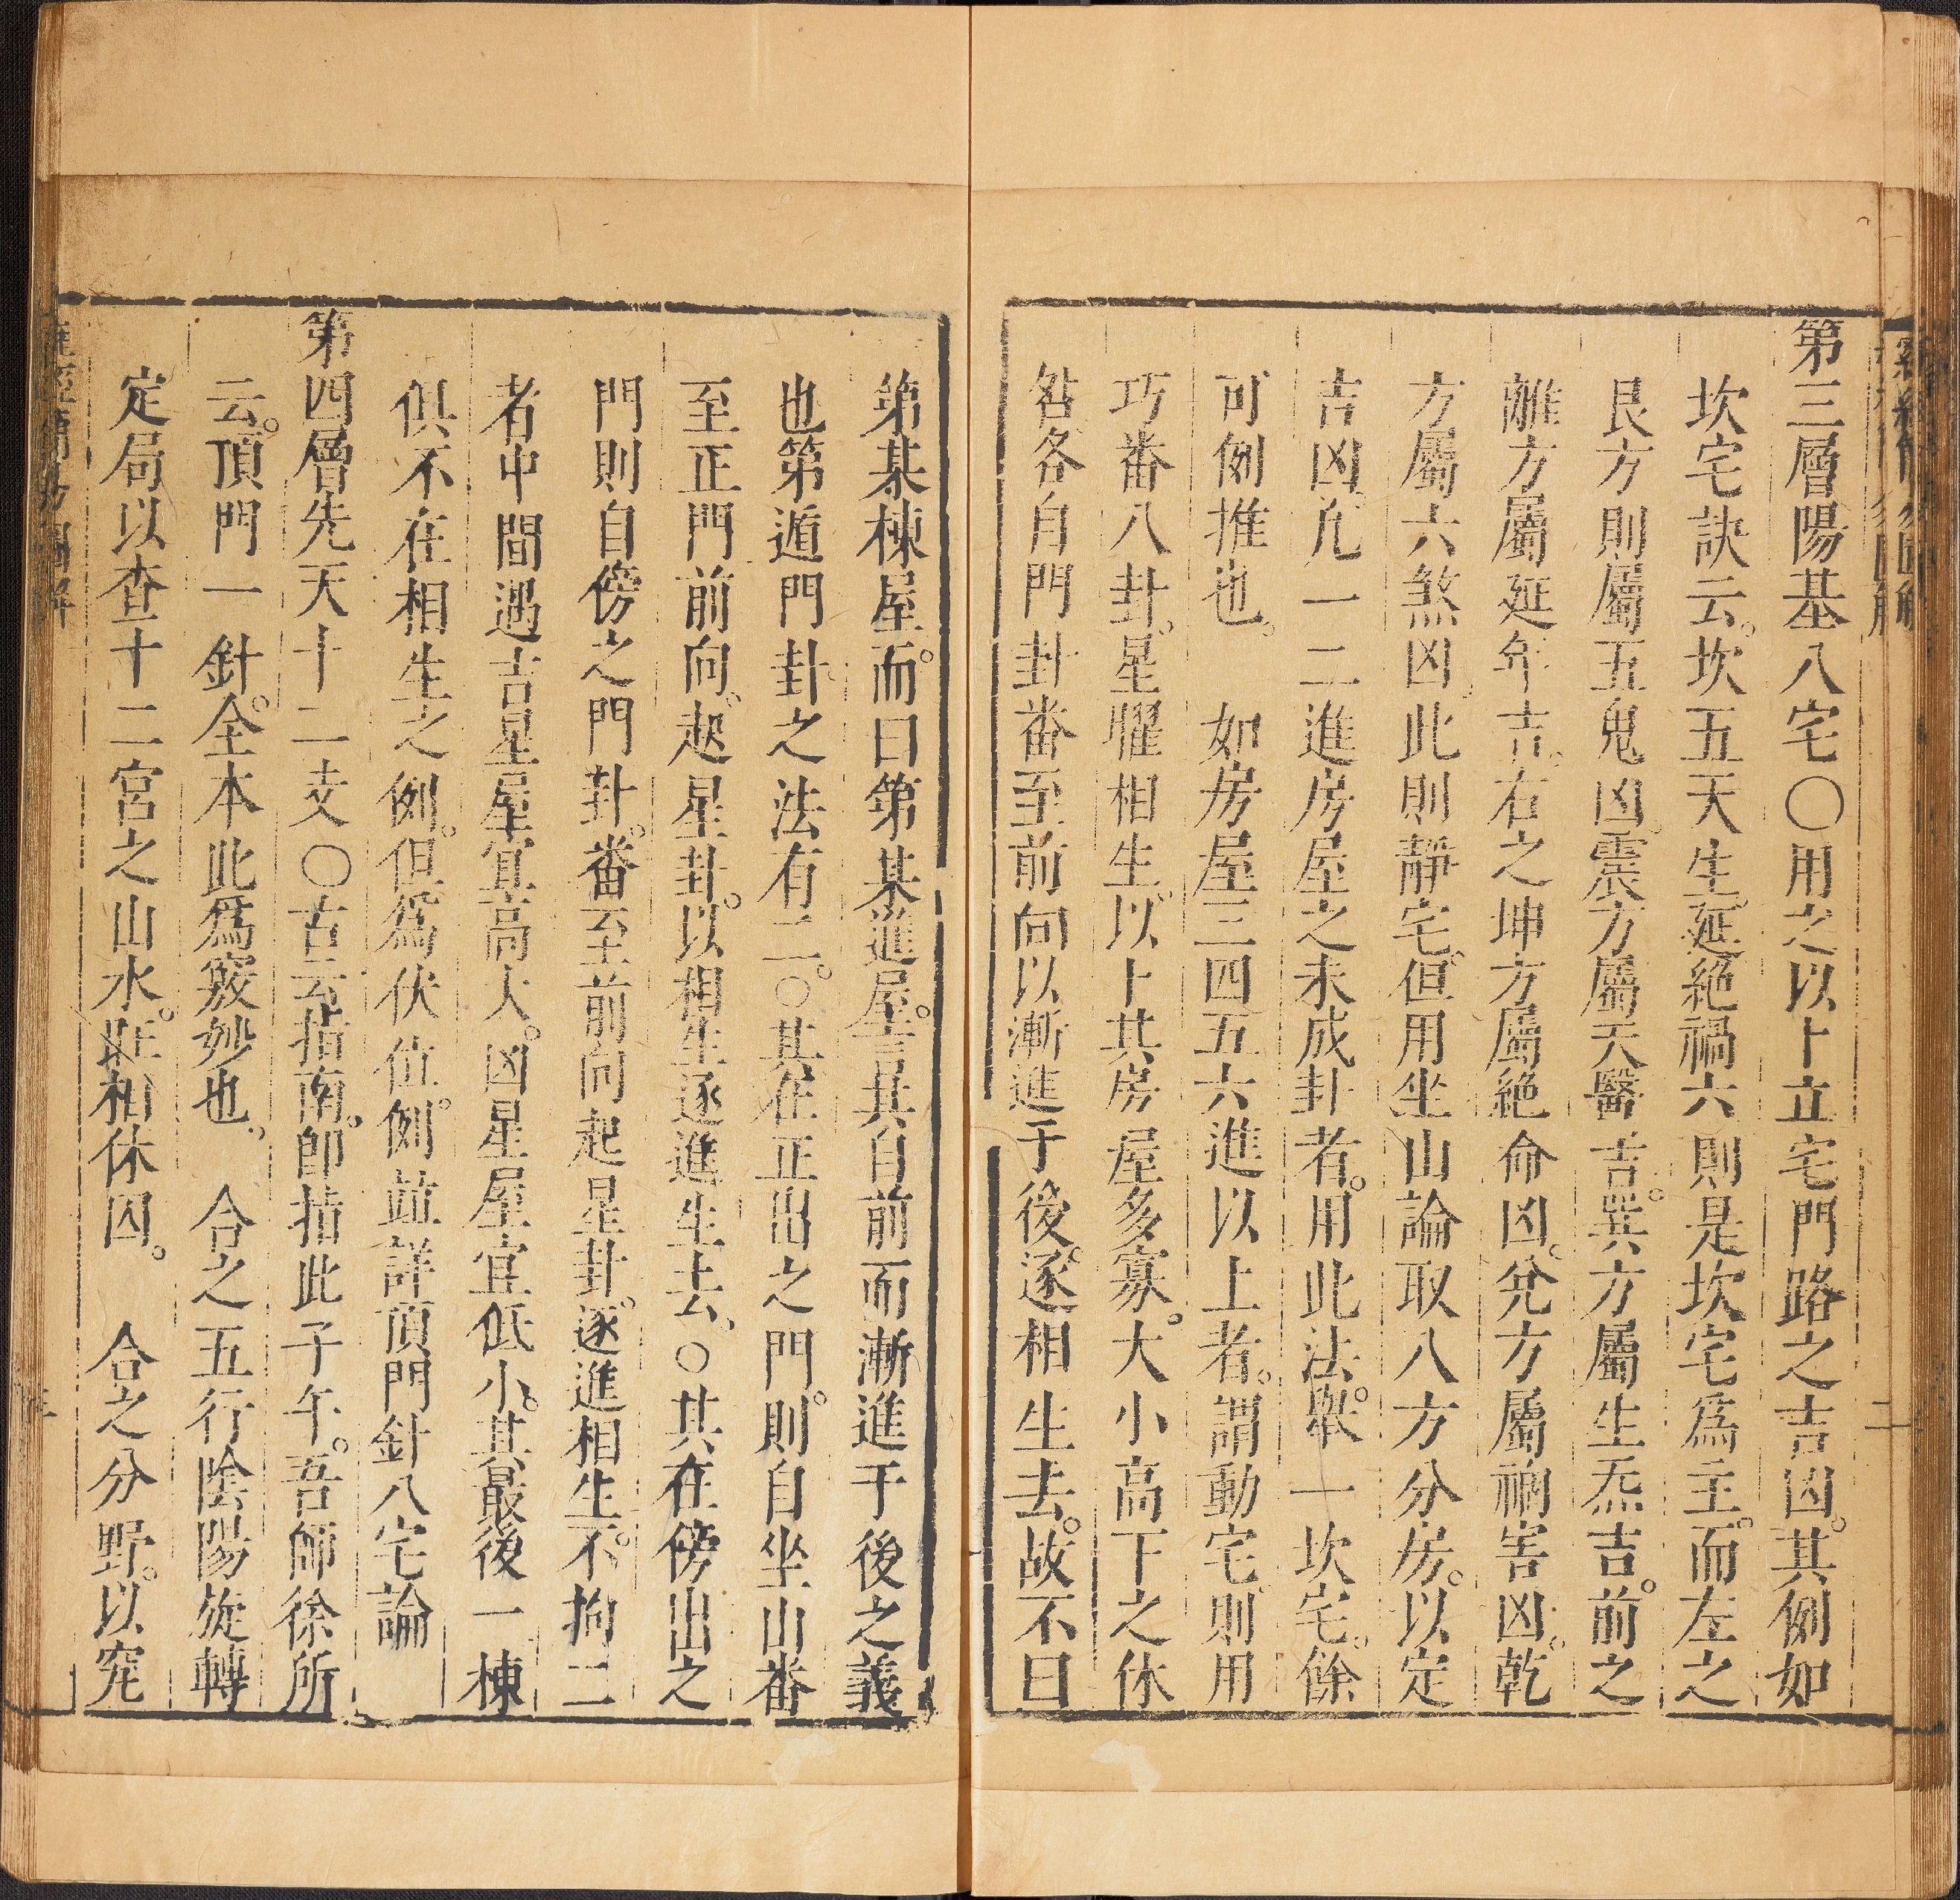 第三層陽基八宅〇用之以卜立宅門路之吉凶。其例如
坎宅訣云。坎五天生延絕禍六則是坎宅為主。而左之
艮方則屬五鬼凶。震方屬天醫吉。巽方屬生炁吉。前之
離方屬延年吉。右之坤方屬絕命凶。兌方屬禍害凶。乾
方屬六煞凶。此則靜宅。但用坐山論取八方分房。以定
吉凶。凡一二進房屋之未成卦者。用此法。舉一坎宅。餘
可例推也。 如房屋三四五六進以上者。謂動宅。則用
巧番八卦。星曜相生。以卜其房屋多寡。大小高下之休
咎。各自門卦番至前向以漸進于後。逐相生去。故不曰
第某棟屋。而曰第某進屋。言其自前而漸進于後之義
也第遁門卦之法有二。〇其在正出之門。則自坐山番
至正門前向。起星卦。以相生逐進生去。〇其在傍出之
門則自傍之門卦。番至前向起星卦。逐進相生。不拘二
者中間遇吉星屋宜高大。凶星屋宜低小。其最後一棟
俱不在相生之例。但為伏位例。並詳頂門針八宅論
第四層先天十二支〇古云指南。即指此子午。吾師徐所
云。頂門一針。全本此為竅妙也。 合之五行陰陽旋轉
定局以查十二宮之山水。旺相休囚。 合之分野。以究